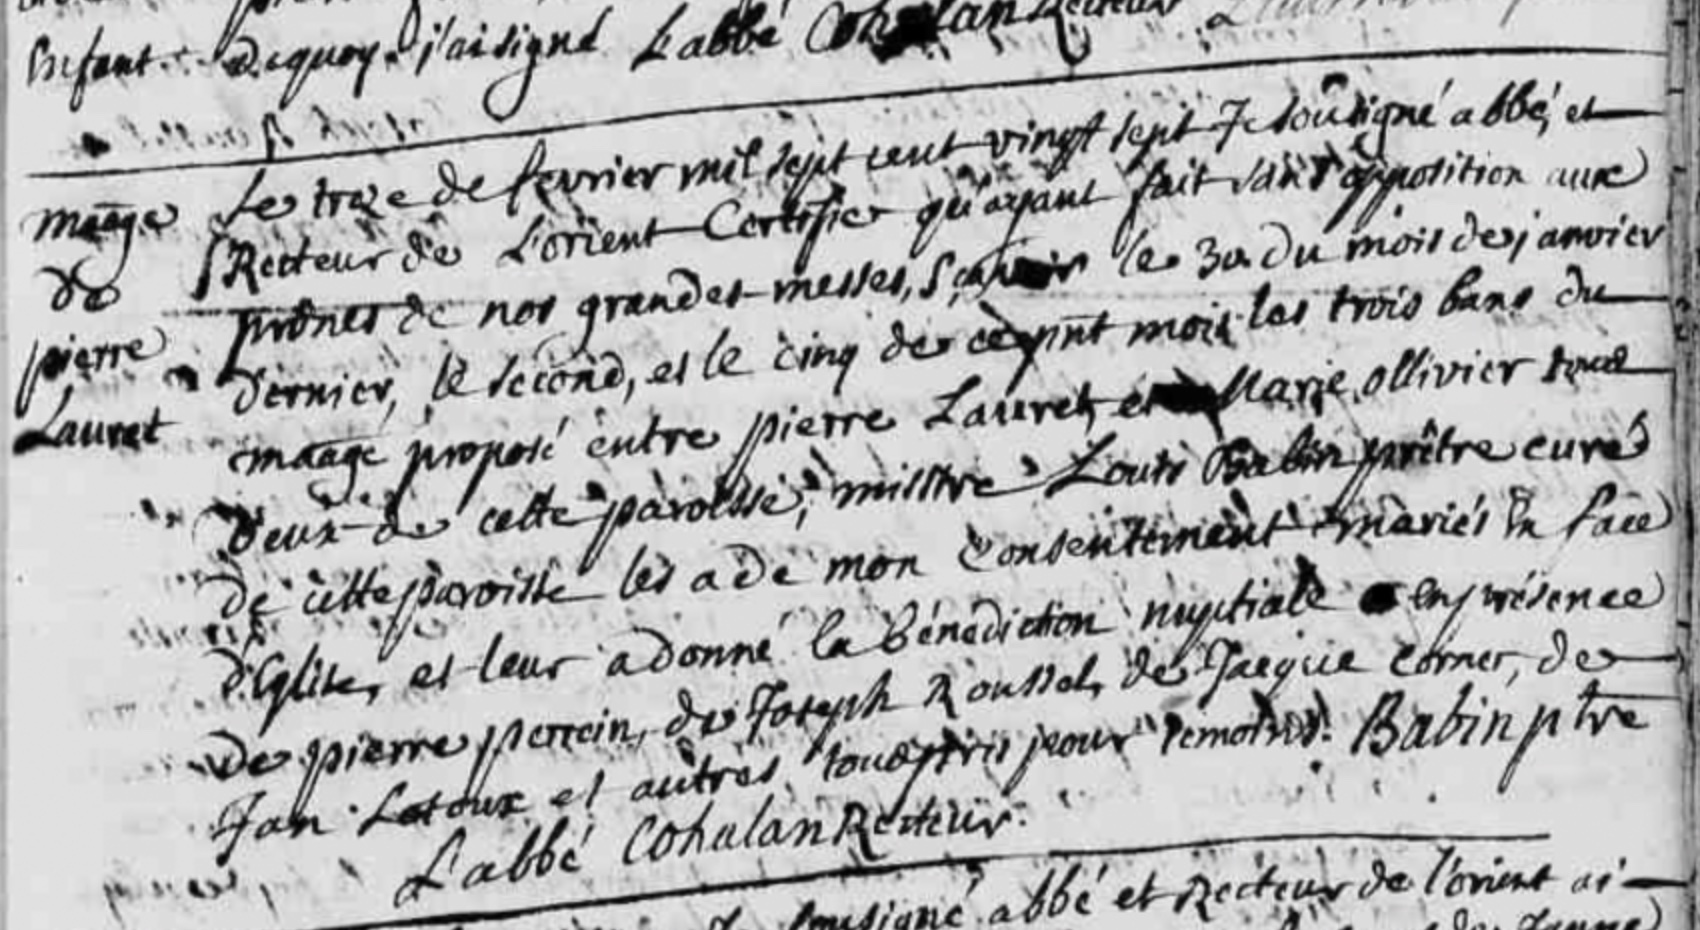 Enfant. dequoy j'ai signé L'abbé Cohalan Recteur
maāge
de
pierre
Lauret
Le treze de fevrier mil sept cent vingt sept Je soûsigné abbé, et
Recteur de L'orient Certifie qu'ayant fait sans opposition aux
prônes de nos grandes messes, sçavoir le 30 du mois de janvier
dernier, le second, et le cinq de ce pnt mois les trois bans du
maāge proposé entre pierre Lauret, et Marie ollivier tous
deux de cette paroisse, missire Louis Babin prêtre curé
de cette paroisse les a de mon consentement mariés En face
d'Eglise, et leur a donné la bénédiction nuptiale en présence
de pierre perrein, de Joseph Roussel, de Jacque Corner, de
Jan Letoux et autres tous pris pour temoins. Babin ptre
L'abbé Cohalan Recteur.
sousigné abbé et Recteur de l'orient ai